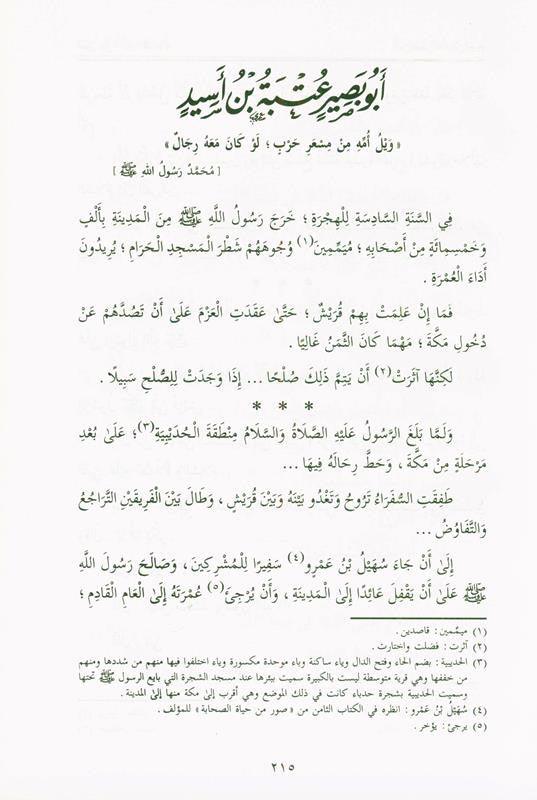 أَبُو بَصِيرٍ عُتْبَةُ بْنُ أَسِيدٍ
« وَيْلُ أُمِّهِ مِنْ مِسْعَرِ حَرْبٍ ؛ لَوْ كَانَ مَعَهُ رِجَالٌ »
[ مُحَمَّدٌ رَسُولُ اللهِ ﷺ ]
فِي السَّنَةِ السَّادِسَةِ لِلْهِجْرَةِ ؛ خَرَجَ رَسُولُ اللَّهِ ﷺ مِنَ الْمَدِينَةِ بِأَلْفٍ
وَخَمْسِمِائَةٍ مِنْ أَصْحَابِهِ ؛ مُيَمِّمِينَ(١) وُجُوهَهُمْ شَطْرَ الْمَسْجِدِ الْحَرَامِ ؛ يُرِيدُونَ
أَدَاءَ الْعُمْرَةِ .
فَمَا إِنْ عَلِمَتْ بِهِمْ قُرَيْشٌ ؛ حَتَّىٰ عَقَدَتِ الْعَزْمَ عَلَىٰ أَنْ تَصُدَّهُمْ عَنْ
دُخُولِ مَكَّةَ ؛ مَهْمَا كَانَ الثَّمَنُ غَالِيًا .
لَكِنَّهَا آثَرَتْ(٢) أَنْ يَتِمَّ ذَلِكَ صُلْحًا ... إِذَا وَجَدَتْ لِلصُّلْحِ سَبِيلًا .
* * *
وَلَمَّا بَلَغَ الرَّسُولُ عَلَيْهِ الصَّلَاةُ وَالسَّلَامُ مِنْطَقَةَ الْحُدَيْبِيَةِ(٣) ؛ عَلَىٰ بُعْدِ
مَرْحَلَةٍ مِنْ مَكَّةَ ، وَحَطَّ رِحَالَهُ فِيهَا ...
طَفِقَتِ السُّفَرَاءُ تَرُوحُ وَتَغْدُو بَيْنَهُ وَبَيْنَ قُرَيْشٍ ، وَطَالَ بَيْنَ الْفَرِيقَيْنِ التَّرَاجُعُ
وَالتَّفَاوُضُ ...
إِلَىٰ أَنْ جَاءَ سُهَيْلُ بْنُ عَمْرٍو(٤) سَفِيرًا لِلْمُشْرِكِينَ ، وَصَالَحَ رَسُولَ اللَّهِ
ﷺ عَلَىٰ أَنْ يَقْفِلَ عَائِدًا إِلَىٰ الْمَدِينَةِ ، وَأَنْ يُرْجِئَ(٥) عُمْرَتَهُ إِلَىٰ الْعَامِ الْقَادِمِ ؛
(١) ميمّمين : قاصدين .
(٢) آثرت : فضلت واختارت .
(٣) الحديبية : بضم الحاء وفتح الدال وياء ساكنة وباء موحدة مكسورة وياء اختلفوا فيها منهم من شددها ومنهم
من خففها وهي قرية متوسطة ليست بالكبيرة سميت ببئرها عند مسجد الشجرة التي بايع الرسول ﷺ تحتها
وسميت الحديبية بشجرة حدباء كانت في ذلك الموضع وهي أقرب إلى مكة منها إلى المدينة .
(٤) سُهَيْلُ بْنُ عَمْرٍو : انظره في الكتاب الثامن من « صور من حياة الصحابة » للمؤلف .
(٥) يرجئ : يؤخر .
٢١٥